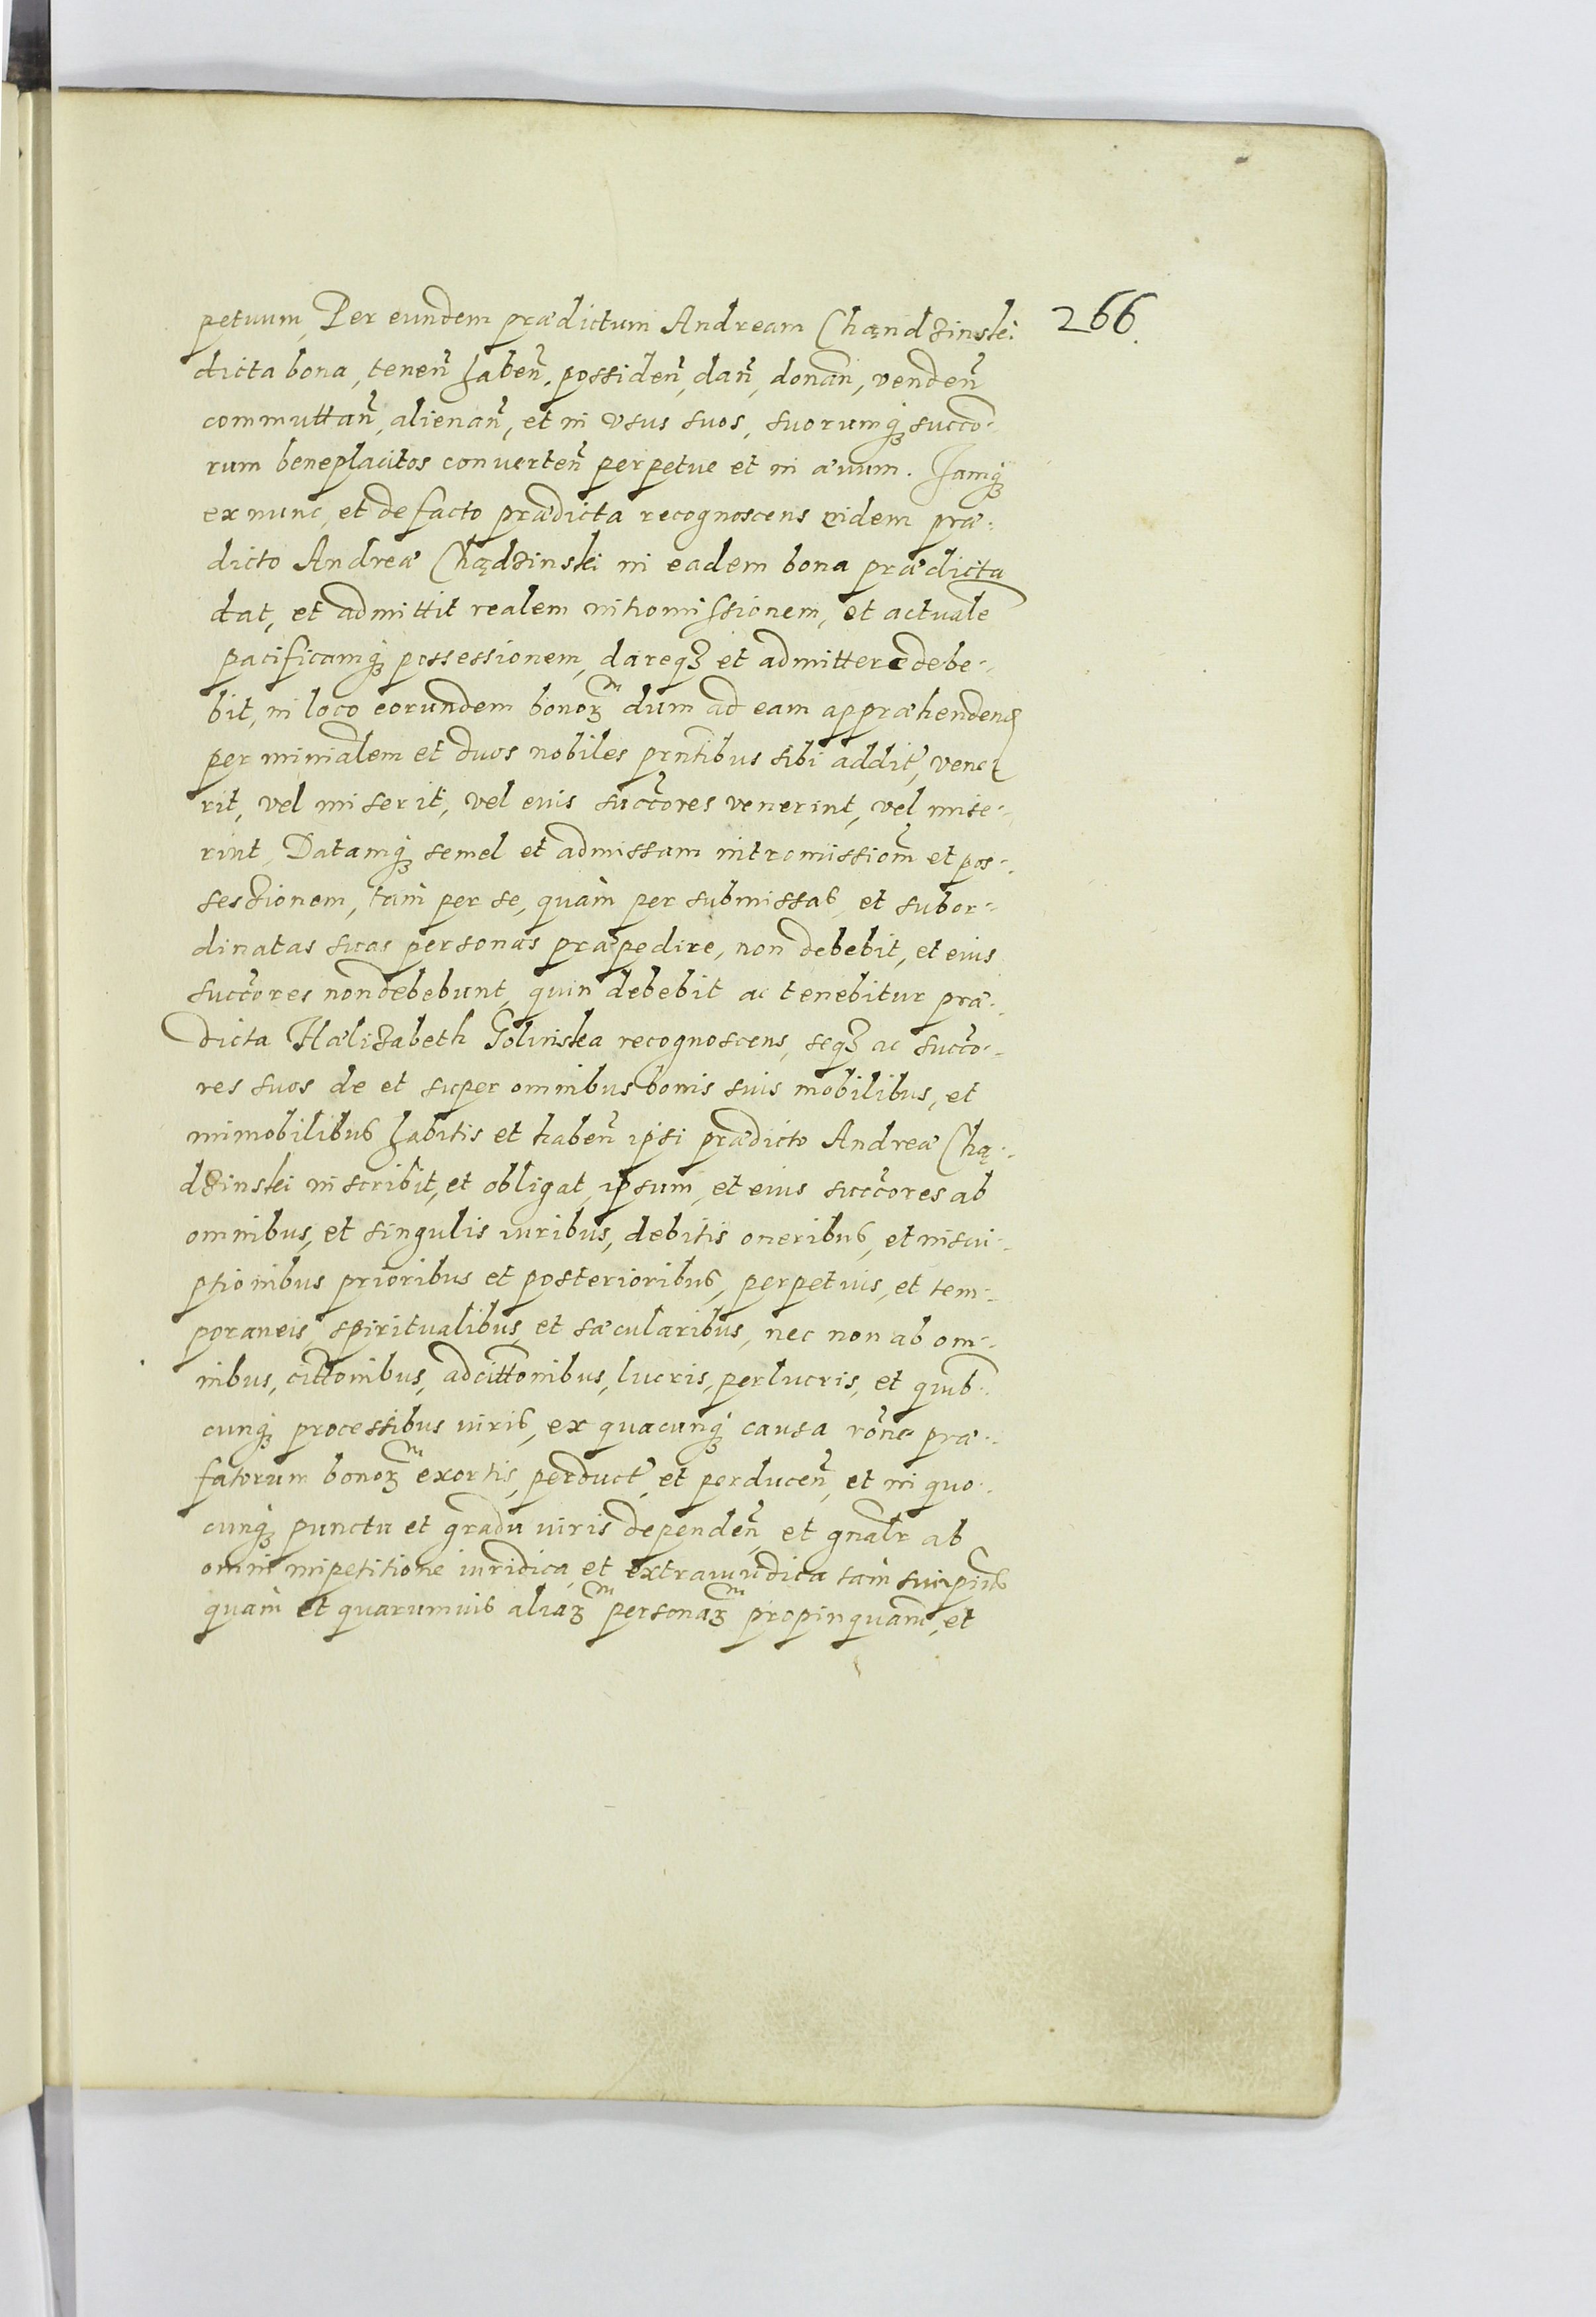 petuum, Per eundem prædictum Andream Chandzinski 266.
dicta bona, tenen̄ haben̄, possiden̄, dan̄, donan̄, venden̄
commuttan̄, alienan̄, et in vsus suos, suorumq́ʒ succō=
rum beneplacitos conuerten̄ perpetue et in æuum. Jamq́ʒ
ex nunc, et de facto prædicta recognoscens eidem præ=
dicto Andreæ Chądzinski in eadem bona prædicta
dat, et admittit realem intromissionem, et actualē
pacificamq́ʒ possessionem, dareqʒ et admittere debe=
bit, in loco eorundem bonorʒᵐ dum ad eam appræhenden̄
per minialem et duos nobiles prn̄tibus sibi addit̄, vene
rit, vel miserit, vel euis succ̄ores venerint, vel mise=
rint, Datamq́ʒ semel et admissam intromissiōm et pos=
sessionem, tam̀ per se, quam̀ per submissas, et subor=
dinatas suas personas præpedire, non debebit, et eius
succ̄ores non debebunt, quin debebit ac tenebitur præ=
dicta Hælizabeth Golinska recognoscens, seqʒ ac succō=
res suos de et super omnibus bonis suis mobilibus, et
immobilibus habitis et haben̄ ipsi prædicto Andreæ Chą=
dzinski inscribit, et obligat, ipsum, et eius succ̄ores ab
omnibus, et singulis iuribus, debitis oneribus, et inscri=
ptionibus prioribus et posterioribus, perpetuis, et tem=
poraneis, spiritualibus, et sæcularibus, nec non ab om=
nibus, citt̄onibus, adcitt̄onibus, lucris, perlucris, et quib̄=
cunq́ʒ processibus iuris, ex quacunq́ʒ causa rōne præ=
fatorum bonorʒᵐ exortis, perduct̄, et perducen̄, et in quo=
cunq́ʒ punctu et gradu iuris dependen̄, et gn̄alr ab
omni impetitione iuridica, et extraiuridica tam̀ sui ipsius
quam̀ et quarumuis aliarʒᵐ personarʒᵐ propinquam̄, et